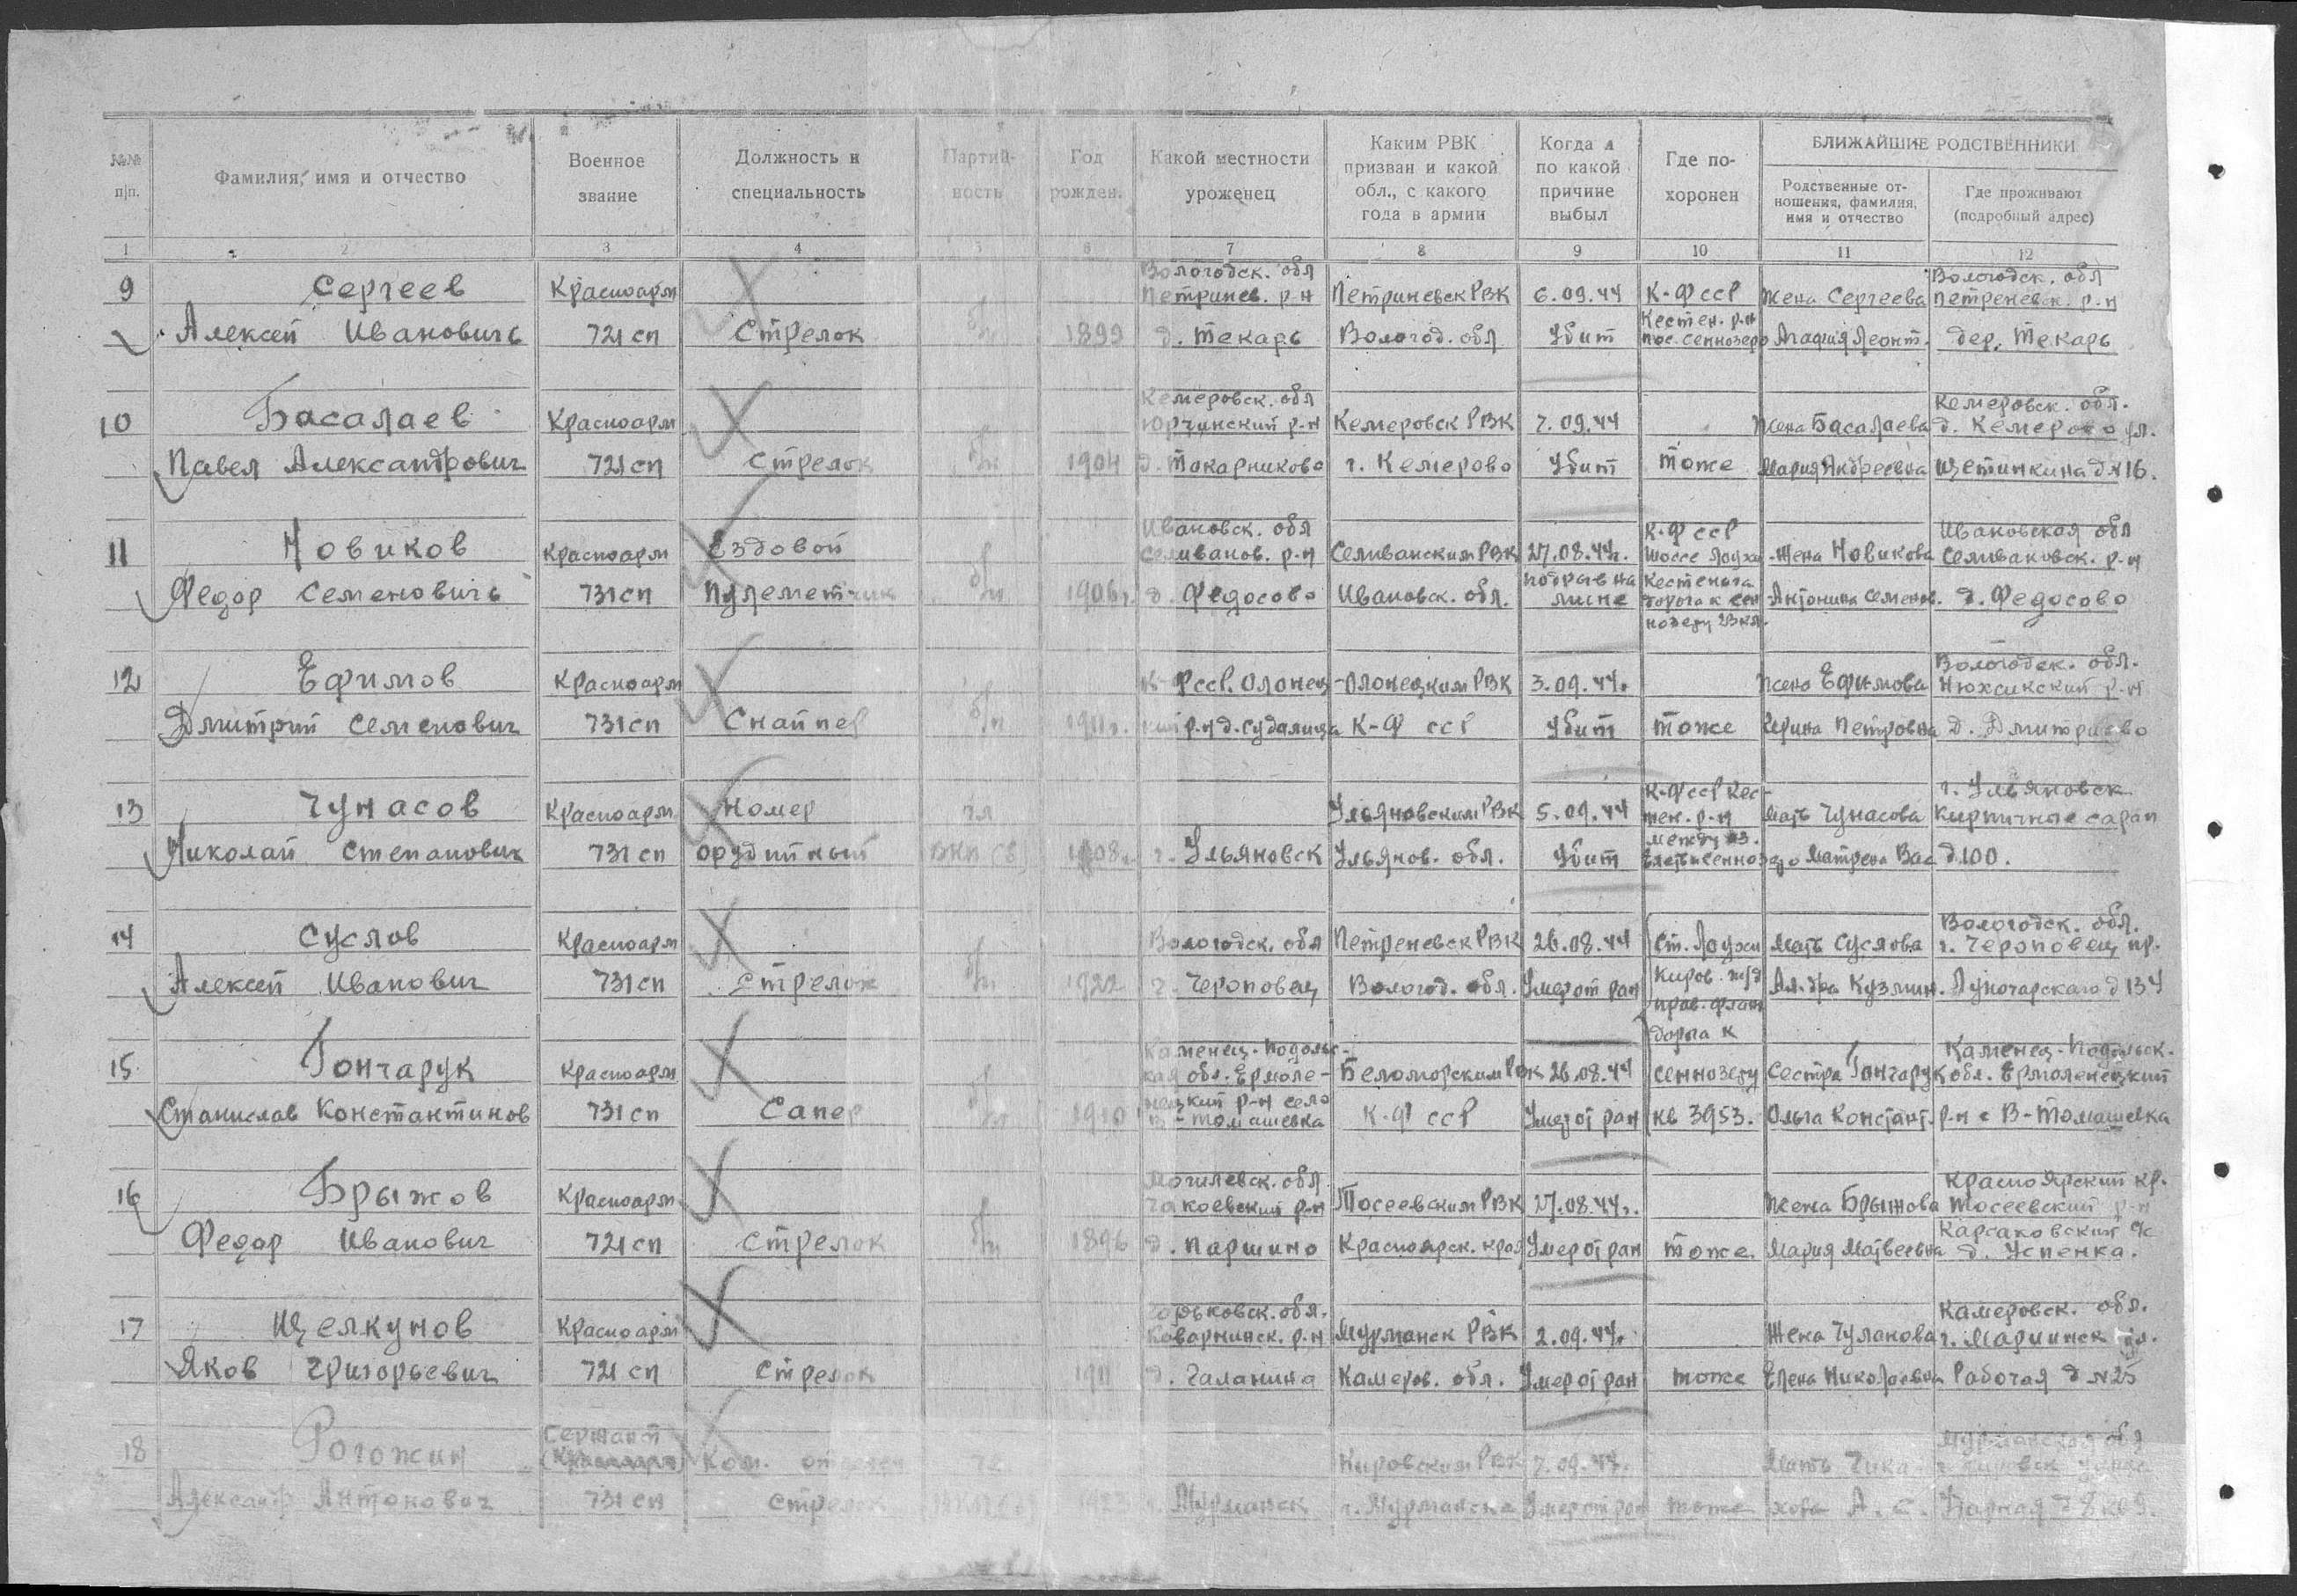 №№ п|п.
Фамилия, имя и отчество
Военное звание
Должность и специальность
Партийность
Год рожден.
Какой местности уроженец
Каким РВК призван и какой обл., с какого года в армии
Когда и по какой причине выбыл
Где похоронен
БЛИЖАЙШИЕ РОДСТВЕННИКИ
Родственные отношения, фамилия, имя и отчество
Где проживают (подробный адрес)
1 2 3 4 5 6 7 8 9 10 11 12
Вологодск. обл Вологодск. обл
9 Сергеев Красноарм Петринев. р-н Петриневск РВК 6.09.44 К-Ф ССР Жена Сергеева Петреневск. р-н
Кестен. р-н
Алексей Ивановичь 721 сп Стрелок б/п 1899 д. Текарь Вологод. обл Убит пос. Сеннозеро Мария Леонт. дер. Текарь
Кемеровск. обл Кемеровск. обл.
10 Басалаев Красноарм Юргинский р-н Кемеровск РВК 7.09.44 Жена Басалаева д. Кемерово ул.
Павел Александрович 721 сп Стрелок б/п 1904 д. Токарниково г. Кемерово Убит тоже Мария Андреевна Щетинкина д №16.
Ивановск. обл К-Ф ССР Ивановская обл
11 Новиков Красноарм Ездовой Селиванов. р-н Селиванским РВК 27.08.44г. шоссе Лоухи Жена Новикова Селивановск. р-н
подрыв на Кестеньга
Федор Семеновичь 731 сп Пулеметчик б/п 1906г. д. Федосово Ивановск. обл. мине дорога к Сен Антонина Семенов. д. Федосово
нозеру 23 кл.
Вологодск. обл.
12 Ефимов Красноарм К-Ф ССР. Олонец- Олонецким РВК 3.09.44г. Жена Ефимова Нюксикский р-н
Дмитрий Семенович 731 сп Снайпер б/п 1911г. кий р-н д. Судалица К-Ф ССР Убит тоже Петровна д. Дмитриево
К-Ф ССР Кес- г. Ульяновск
13 Чунасов Красноарм Номер чл Ульяновским РВК 5.09.44 тен. р-н Мать Чунасова Кирпичные сараи
между оз.
Николай Степанович 731 сп орудийный ВКП(б) 1908г. г. Ульяновск Ульянов. обл. Убит Матрена Вас д 100.
Вологодск. обл.
14 Суслов Красноарм Вологодск. обл Петреневск РВК 26.08.44 Ст. Лоухи Мать Суслова г. Чероповец пр.
Алексей Иванович 731 сп Стрелок б/п 1922 г. Череповец Вологод. обл. Умер от ран Киров. ж/д Ал-дра Кузмин. Луночарского д 134
прав. флан
дорога к
Каменец-Подольс- Каменец-Подольск.
15 Гончарук Красноарм кая обл. Ермоле- Беломорским РВК 26.08.44 Сеннозеру Сестра Гончарук обл. Ермоленецкий
нецкий р-н село
Станислав Константинов 731 сп Сапер б/п 1910 В-Томашевка К-Ф ССР Умер от ран кв 3953. Ольга Констант. р-н с В-Томашевка
Могилевск. обл. Красноярский кр.
16 Брыжов Красноарм р-н Тосеевским РВК 27.08.44г. Жена Брыжова Тосеевский р-н
Карсаковский с/с
Федор Иванович 721 сп Стрелок б/п 1896 д. Паршино Красноярск. края Умер от ран тоже Мария Матвеевна д. Успенка.
Горьковск. обл. Камеровск. обл.
17 Щелкунов Красноарм Коварнинск. р-н Мурманск РВК 2.09.44г. Жена Чуланова г. Мариинск ул.
Яков Григорьевич 721 сп Стрелок 1911 д. Галанина Камеров. обл. Умер от ран тоже Елена Николаевна Рабочая д №25
Сержант Мурманская обл
18 Рогожин (Красноарм) Ком. отделен Кировским РВК 7.09.44г. Мать Чика-
Александр Антонович 731 сп Стрелок 1923 г. Мурманск г. Мурманска Умер от ран тоже А. С.